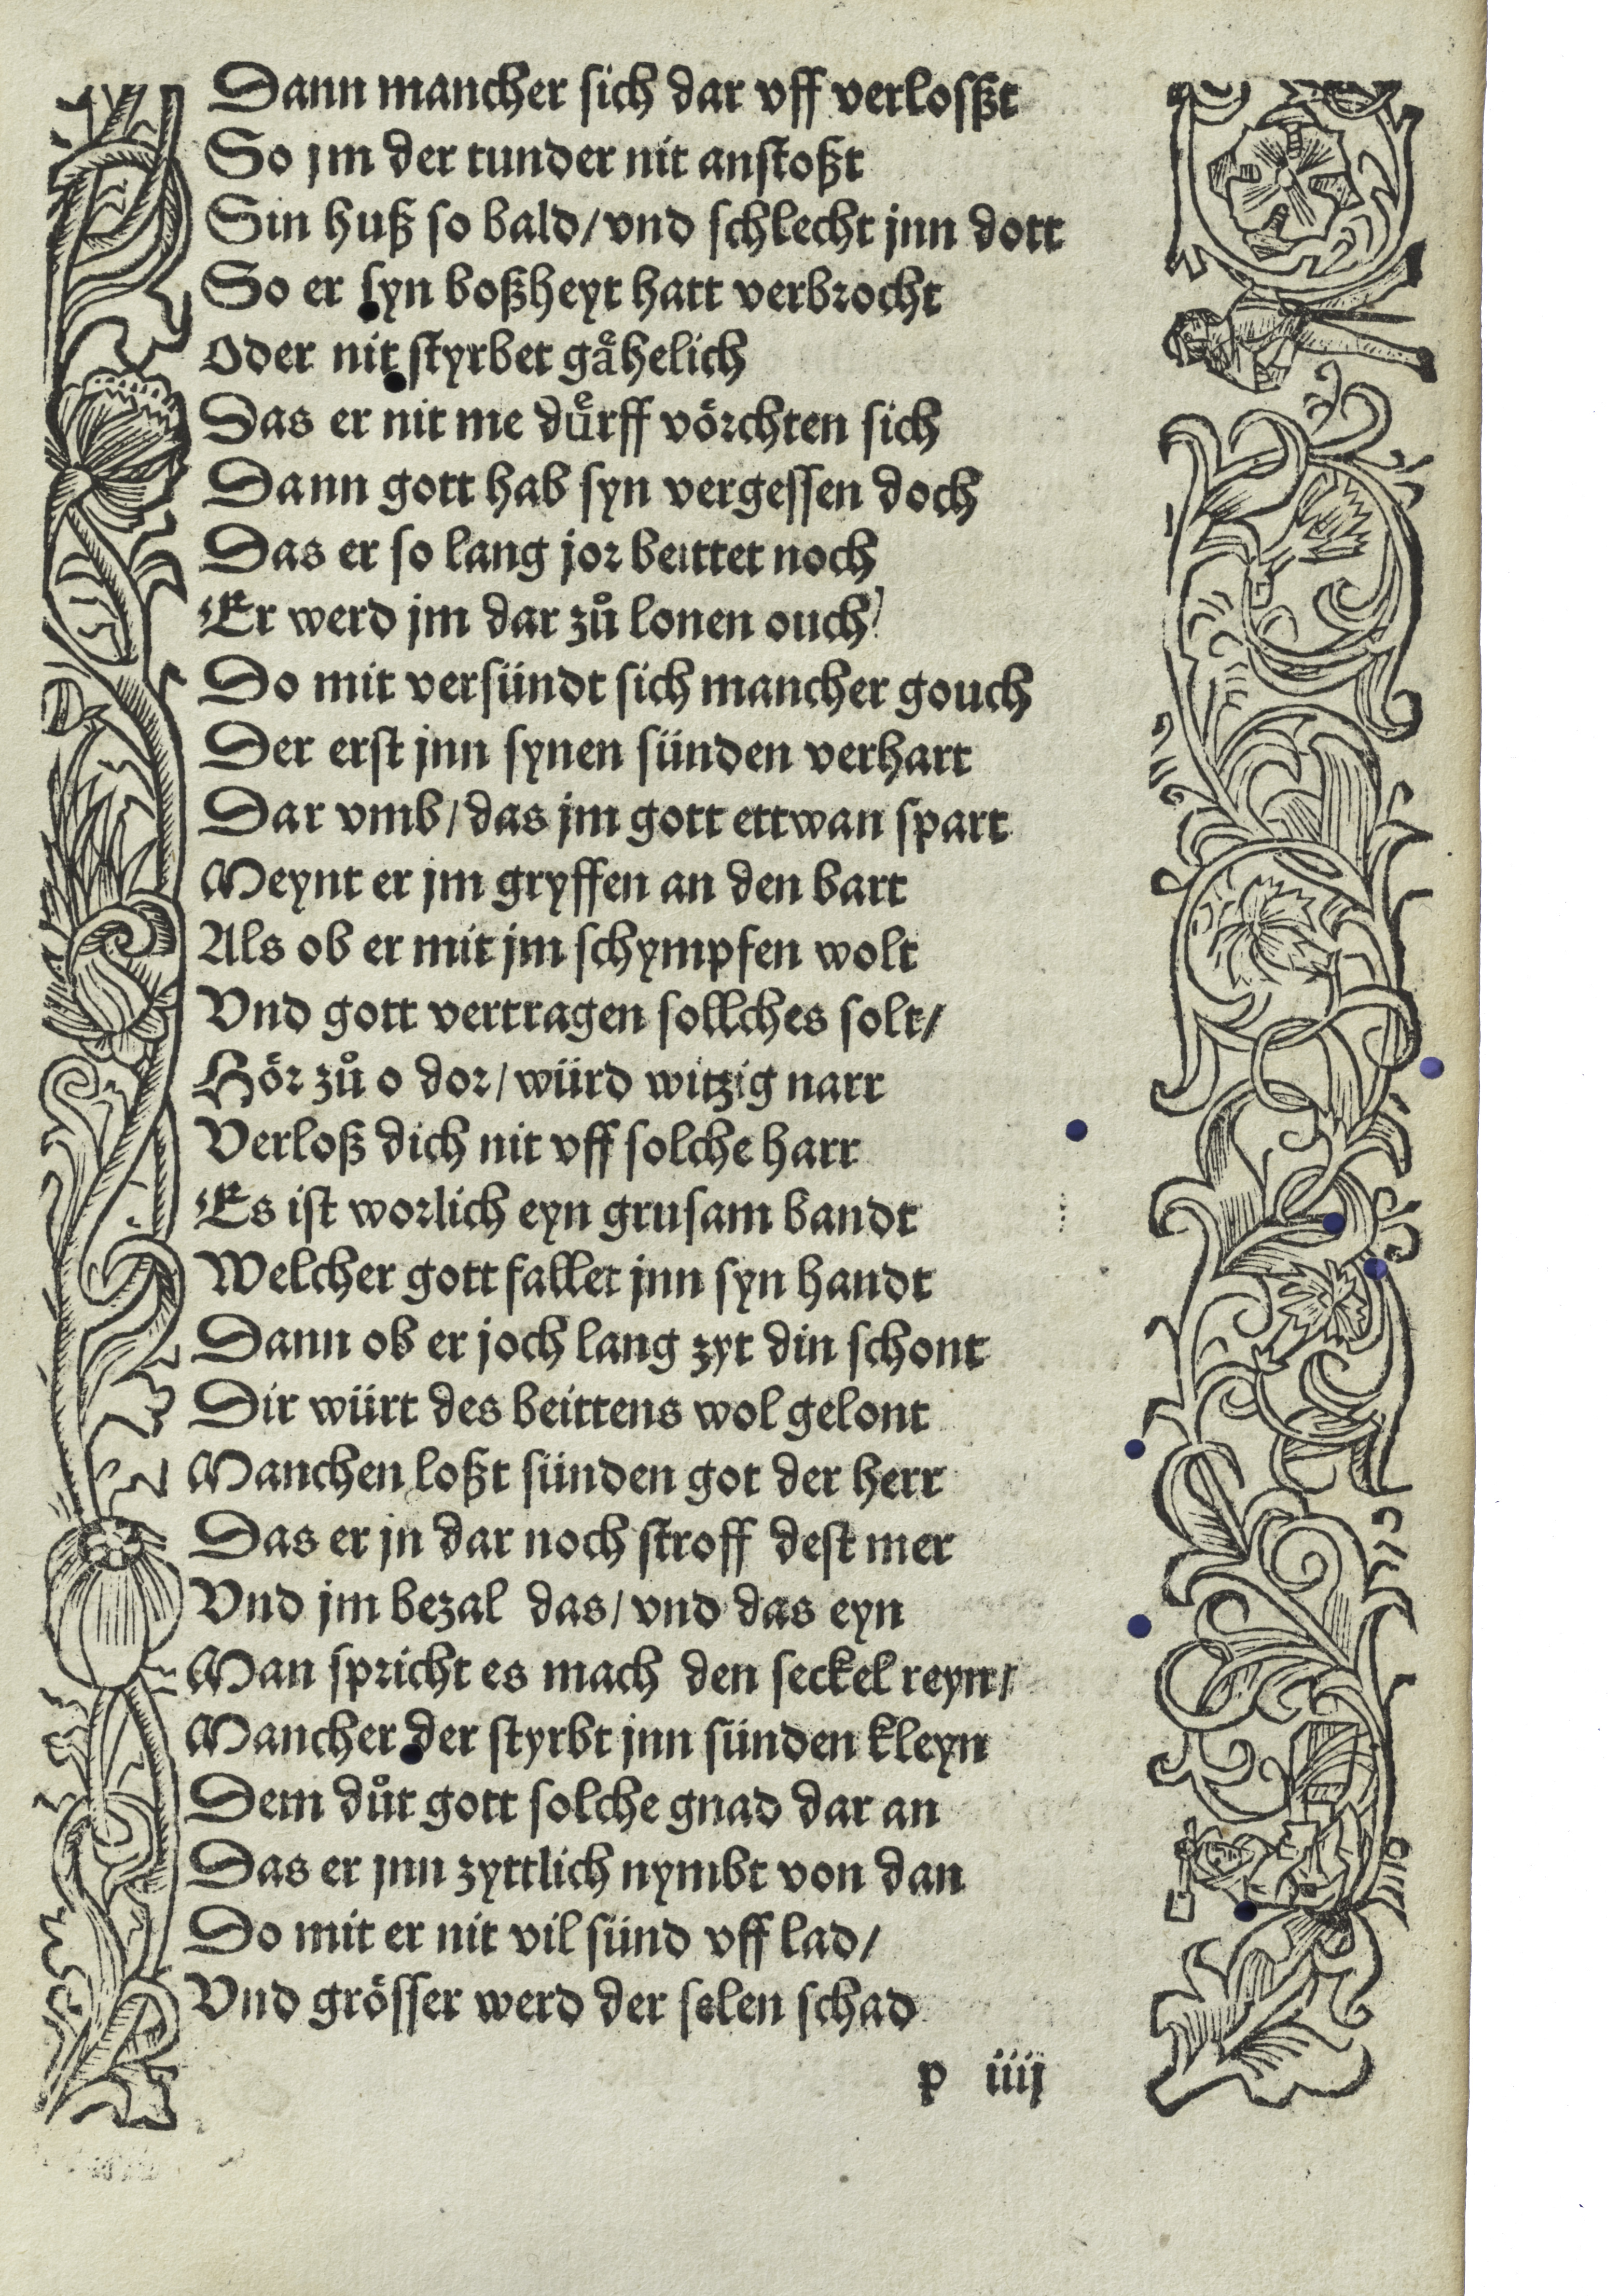 Dann mancher sich dar vff verlosßt
So jm der tunder nit anstoßt
Sin huß so bald/vnd schlecht jnn dott
So er syn boßheyt hatt verbrocht
Oder nit styrbet gåhelich
Das er nit me duͤrff vörchten sich
Dann gott hab syn vergessen doch
Das er so lang jor beittet noch
Er werd jm dar zů lonen ouch
Do mit versündt sich mancher gouch
Der erst jnn synen sünden verhart
Dar vmb/das jm gott ettwan spart
Meynt er jm gryffen an den bart
Als ob er mit jm schympfen wolt
Vnd gott vertragen sollches solt/
Hör zů o dor/würd witzig narr
Verloß dich nit vff solche harr
Es ist worlich eyn grusam bandt
Welcher gott fallet jnn syn handt
Dann ob er joch lang zyt din schont
Dir würt des beittens wol gelont
Manchen loßt sünden got der herr
Das er jn dar noch stroff dest mer
Vnd jm bezal das/vnd das eyn
Man spricht es mach den seckel reyn/
Mancher der styrbt jnn sünden kleyn
Dem důt gott solche gnad dar an
Das er jnn zyttlich nymbt von dan
Do mit er nit vil sünd vff lad/
Vnd grösser werd der selen schad
p iiij